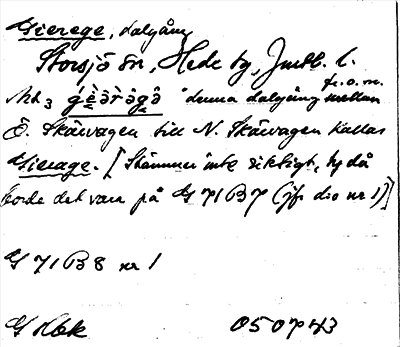 Gierege, dalgång
Storsjö sn, Hede tg, Jmtl. l.
fr.o.m.
denna dalgång mellan
Ö. Skärvagen till N. Skärvagen kallas
Gierage. [Stämmer inte riktigt, ty då
borde det vara på G 71 B 7 (jfr dio nr 1)]
G 71 B 8 nr 1
050743